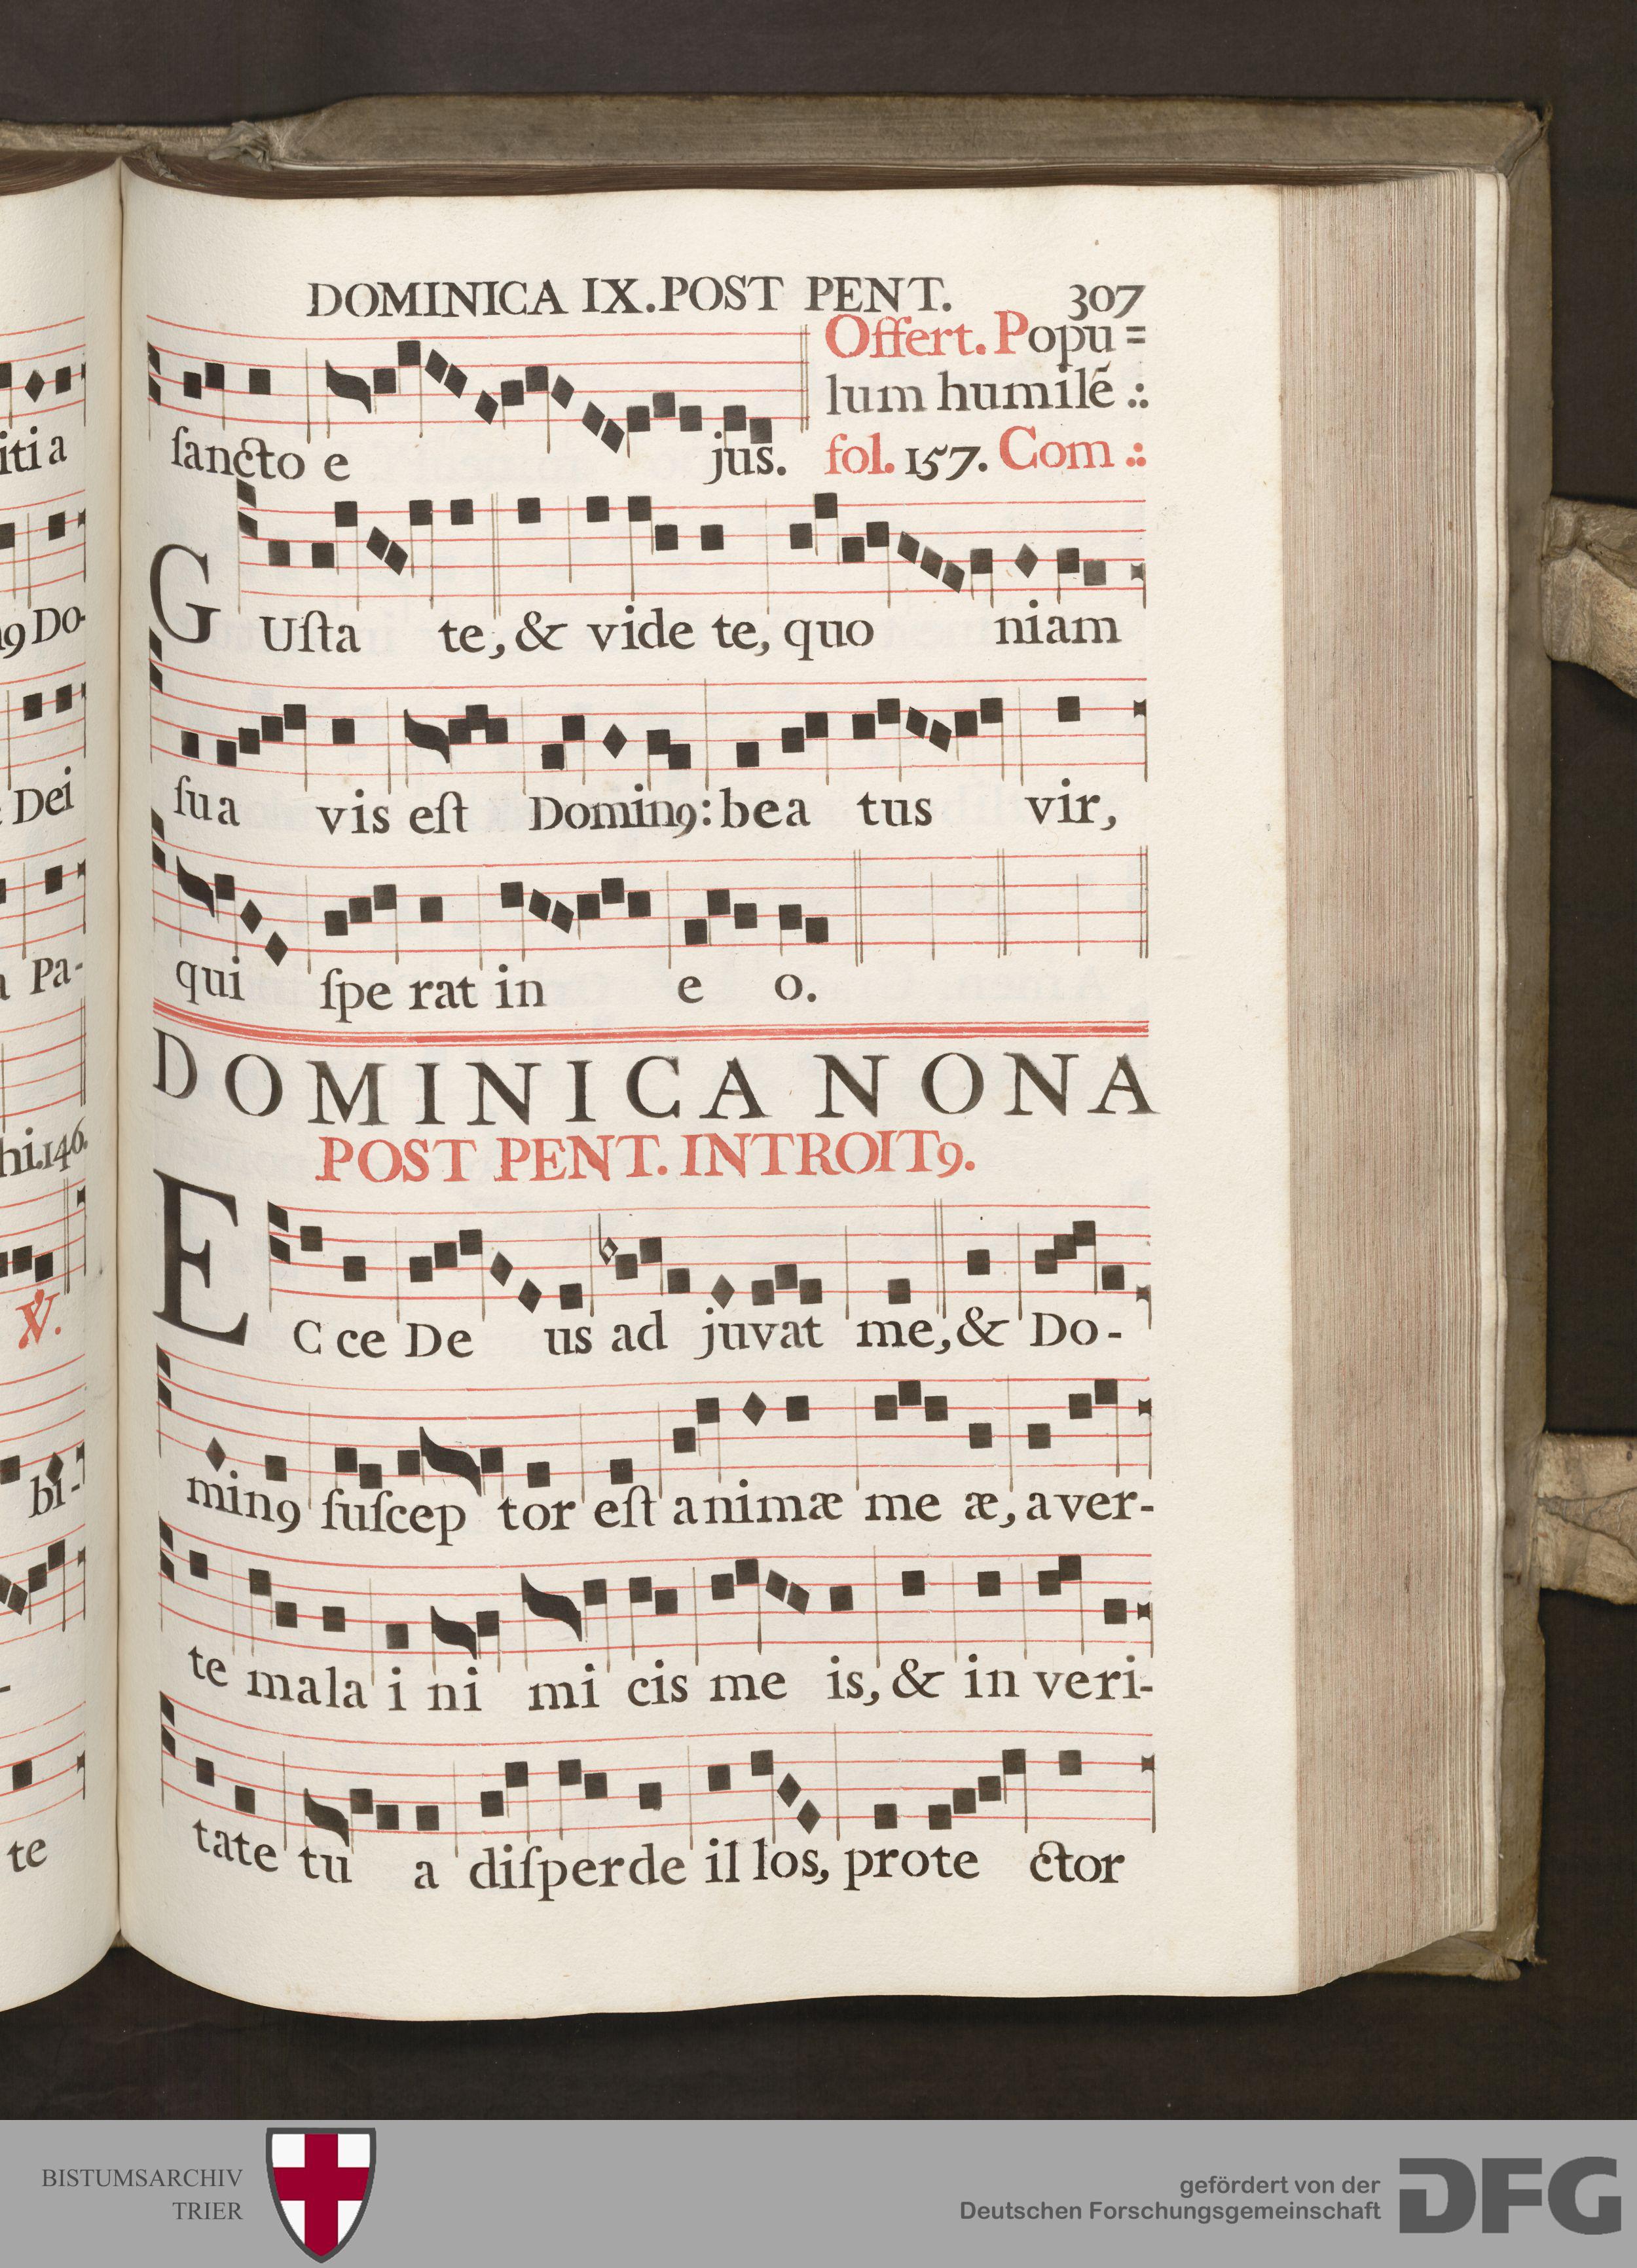 itia
9 Do-
Dei
Pa-
hi.146.
℣.
bi-
te
DOMINICA IX. POST PENT. 307
Offert. Popu=
lum humilē .:
ſancto e jus. fol. 157. Com .:
GUſta te, & vide te, quo niam
ſua vis eſt Domin9: bea tus vir,
qui ſpe rat in e o.
DOMINICA NONA
POST PENT. INTROIT9.
EC ce De us ad juvat me, & Do-
min9 ſuſcep tor eſt animæ me æ, aver-
te mala i ni mi cis me is, & in veri-
tate tu a diſperde illos, prote ctor
BISTUMSARCHIV
TRIER
gefördert von der
Deutschen Forschungsgemeinschaft
DFG